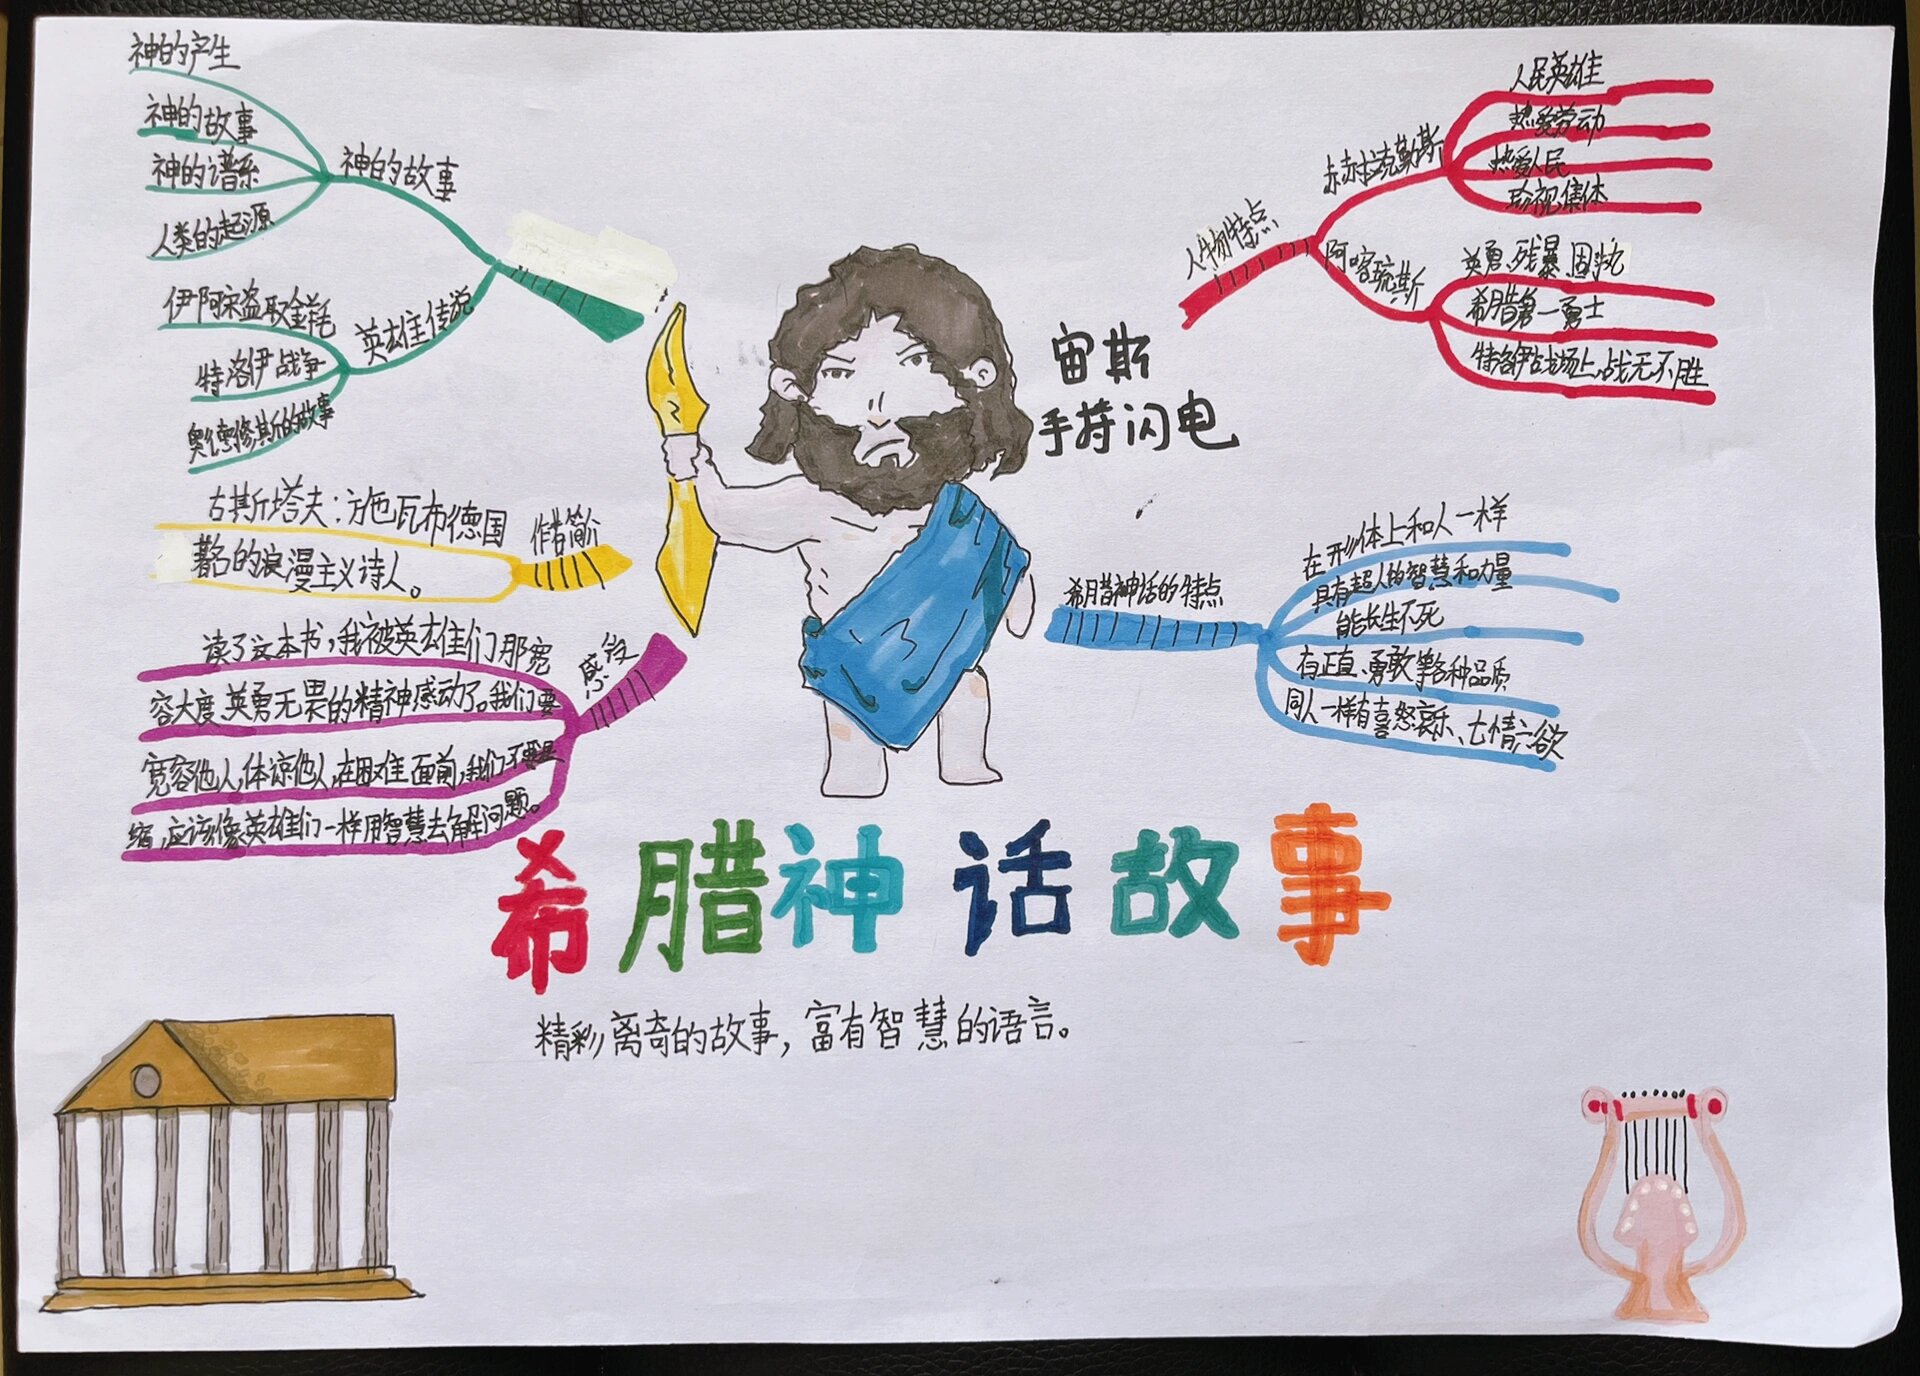 神的产生
神的故事
神的谱系
人类的起源
神的故事
伊阿宋盗取金羊毛
特洛伊战争
奥德修斯的故事
英雄传说
古斯塔夫:施瓦布德国
著名的浪漫主义诗人。
作者简介
读了这本书,我被英雄们那宽
容大度、英勇无畏的精神感动了。我们要
宽容他人,体谅他人,在困难面前,我们不要退
缩,应该像英雄们一样用智慧去解决问题。
感受
宙斯
手持闪电
人物特点
赫拉克勒斯
人民英雄
热爱劳动
热爱人民
珍视集体
阿喀琉斯
英勇、残暴、固执
希腊第一勇士
特洛伊战场上,战无不胜
希腊神话的特点
在形体上和人一样
具有超人的智慧和力量
能长生不死
有正直、勇敢等各种品质
同人一样有喜怒哀乐、七情六欲
希腊神话故事
精彩离奇的故事,富有智慧的语言。